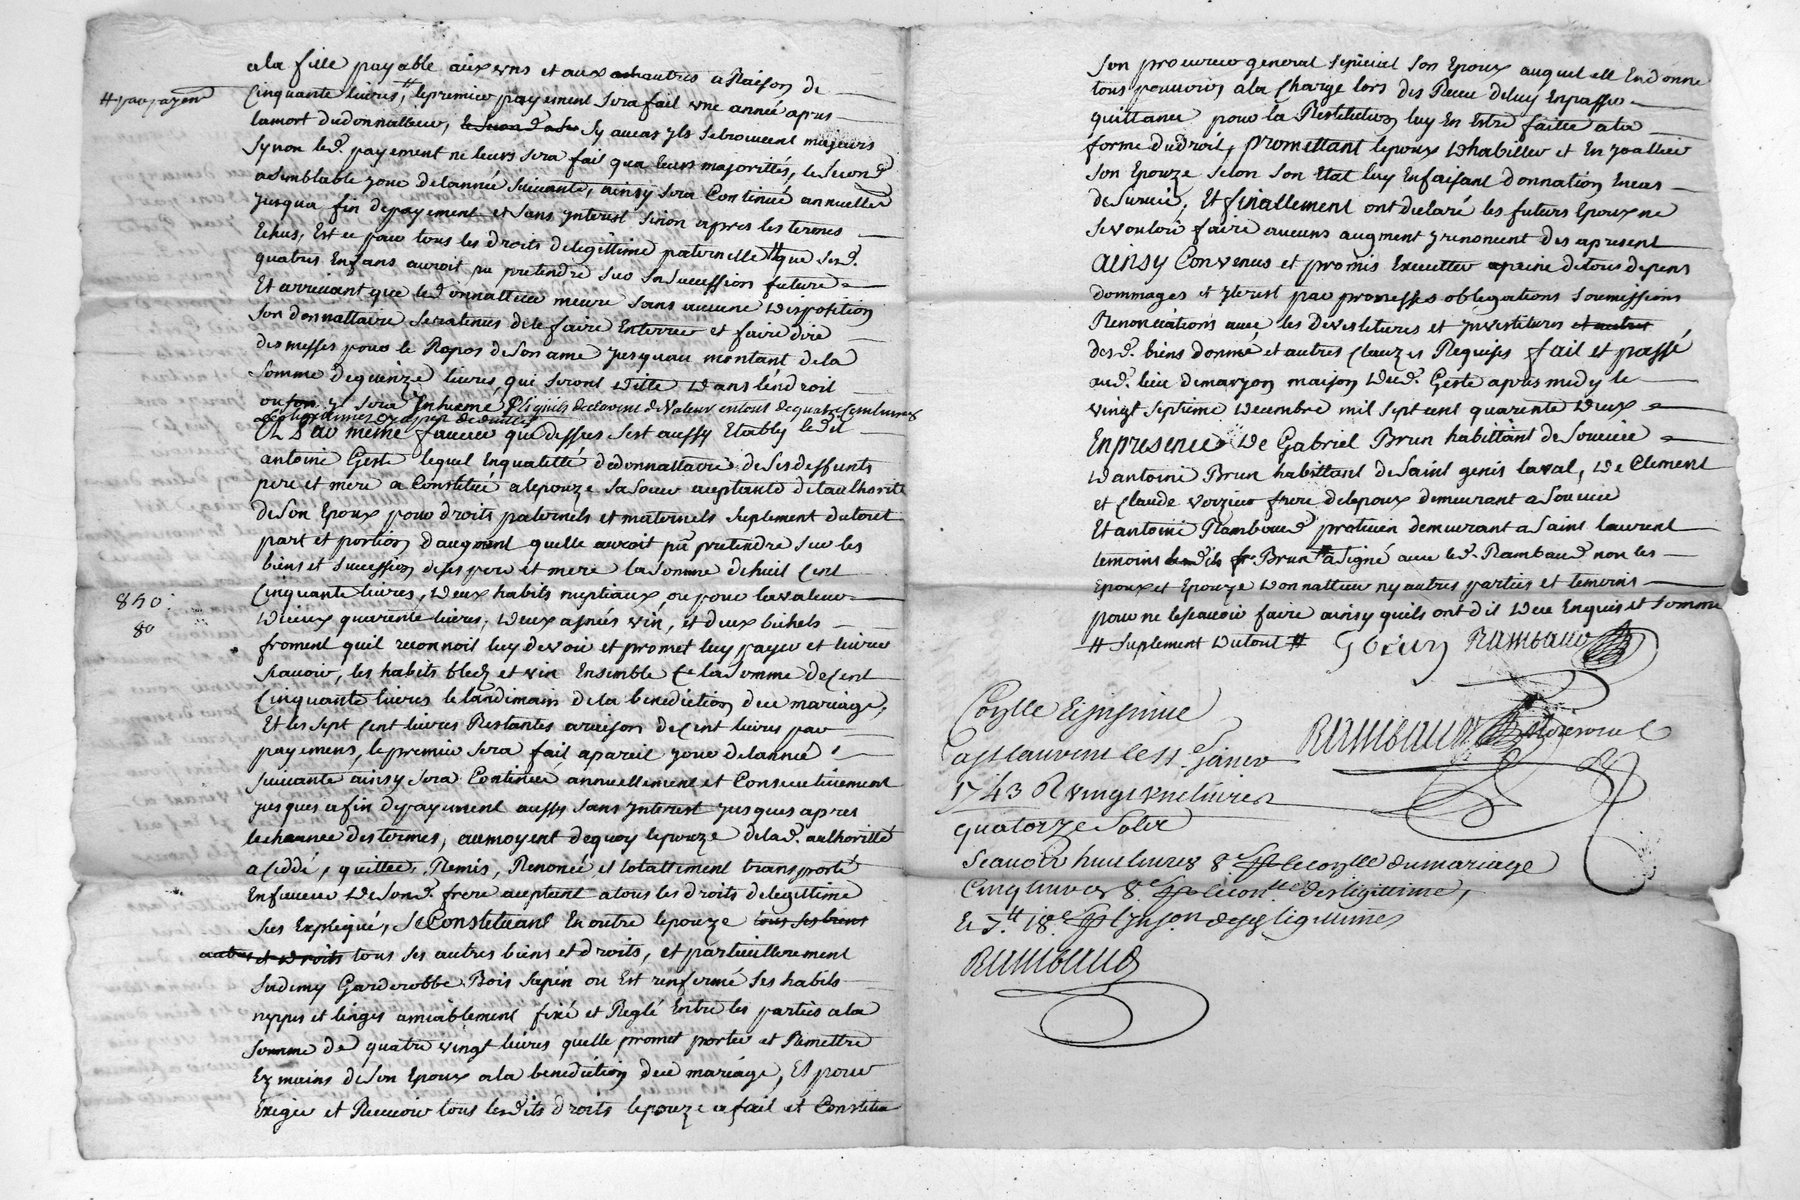 ala fille payable aux uns et aux autres a Raison de
# par payement
cinquante livres, # le premier payement sera fait une année apres
lamort dudonnatteur, sy aucas yls setrouvent majeurs
synon led. payement ne leurs sera fait qua leurs majorittés, le second
asemblable jour delannée suivante, ainsy sera Continué annuellem
jusqua fin depayement et sans ynterest sinon apres les termes
Echus, Est ce pour tous les droits delegittime paternelle # que sesd.
quatres Enfans auroit pu pretendre sur sa succession future
Et arrivant que led donnatteur meure sans aucune disposition
son donnattaire seratenus dele faire Enterrer et faire dire
des messes pour le Repos deson ame jusquau montant dela
somme dequinze livres, qui seront ditte dans lendroit
ou y sera Inhumé
Et dau meme faveur que dessus sest aussy Etably led
antoine Geste lequel Enqualitté dedonnattaire desesdeffunts
pere et mere a Constitué alepouze sasoeur aceptante delauthoritté
deson Epoux pour droits paternels et maternels suplement dutout
part et portion daugment quelle auroit pu pretendre sur les
biens et succession deses pere et mere lasomme dehuit cent
850
cinquante livres, deux habits nuptiaux, ou pour lavaleur
80
diceux quarente livres, deux asnés vin, et deux bichets
froment quil reconnoit luy devoir et promet luy payer et livrer
scavoir, les habits bled et vin Ensemble la somme decent
cinquante livres le landimain dela benediction duce mariage,
Et les sept cent livres Restantes araison decent livres par
payemens, le premier sera fait apareil jour delannée
suivante ainsy sera Continué annuellement et Consecutivement
jusques afin depayement aussy sans ynterest jusques apres
lecheance destermes, aumoyent dequoy lepouze delad. authoritté
a Ceddé, quittée, Remis, Renoncé et totallement transporté
Enfaveur deson d. frere aceptant atous les droits delegittime
sus Expliqué, se Constituant En outre lepouze tous ses biens
autres et droits tous ses autres biens et droits, et particullierement
sudemy Garderobbe Bois sapin ou Est renfermé ses habits
nippes et linges amiablement fixé et Reglé Entre les parties ala
somme de quatre vingt livres quelle promet porter et Remettre
Ez mains deson Epoux ala benediction duce mariage, Et pour
Exiger et Recevoir tous lesdits droits lepouze a fait et Constitué
son procureur general special son Epoux auquel elle Endonne
tous pouvoirs ala Charge lors des Receu deluy Enpasser
quittance pour la Restitution luy En Estre faitte ala
forme dudroit, promettant lepoux dhabiller et En joallier
son Epouze selon son Etat luy Enfaisant donnation Encas
desurvie, Et finallement ont declaré les futurs Epoux ne
sevouloir faire aucuns augment yrenoncent des apresent
ainsy Convenus et promis Executter apeine detous depens
dommages et ynterest par promesses obligations soumissions
Renonciations avec les Devestitures et ynvestitures et autres
desd. biens donné et autres clauzes Requises fait et passé
aud. lieu demarzon maison dud. Geste apres midy le
vingt septieme decembre mil sept cent quarente deux
Enpresence de Gabriel Brun habittant de Soucieu
dantoine Brun habittant deSaint genis laval, de Clement
et Claude verzieu frere delepoux demeurant a Soucieu
Et antoine Rambaud praticien demeurant a Saint laurent
temoins Brun # a signé avec led. Rambaud non les
Epoux et Epouze donnatteur ny autres parties et temoins
pour ne lescavoir faire ainsy quils ont dit dece Enquis et sommé
# suplement dutout # G brun Rambaud
Rambaud
Controllé
a St laurent le 11e Janvier
1743 R vingt une livres
quatorze solz
Scavoir huit livres 8s le du mariage
Cinq livres 8s deslegittime,
Et 7tt 18s legitimes
Rambaud